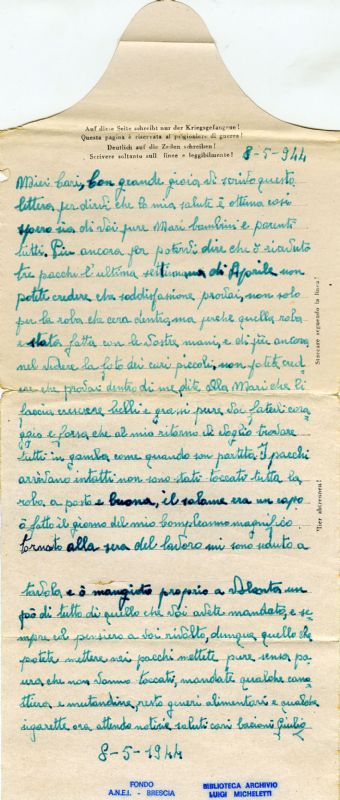 Auf diese Seite schreibt nur der Kriegsgefangene!
Questa pagina è riservata al prigioniero di guerra!
Deutlich auf die Zeilen schreiben!
Scrivere soltanto sull linee e leggibilmente!
8-5-944
Miei Cari, Con grande gioia vi scrivo questa
lettera per dirvi che la mia salute è ottima così
spero sia di voi pure Mari bambini e parenti
tutti. Più ancora per potervi dire che ò ricevuto
tre pacchi l'ultima settimana di Aprile non
potete credere che soddisfasione provai, non solo
per la roba che cera dentro, ma perche quella roba
e stata fatta con le vostre mani, e di più ancora
nel vedere la foto dei cari piccoli, non potete cred
ere che provai dentro di me, dite alla Mari che li
faccia crescere belli e grassi pure voi fatevi cora
ggio e forsa che al mio ritorno vi voglio trovare
tutti in gamba come quando son partito. I pacchi
arrivano intatti non sono stati toccati tutta la
roba a posto e buona, il salame era un capo
ò fatto il giorno del mio compleanno magnifico
tornato alla sera del lavoro mi sono seduto a
tavola e ò mangiato proprio a volonta un
pò di tutto di quello che voi avete mandato, e se
mpre col pensiero a voi rivolto, dunque quello che
potete mettere nei pacchi mettete pure sensa pa
ura che non vanno toccati, mandate qualche cano
ttiera e mutandine, resto generi alimentari e qualche
sigarette ora attendo notisie saluti cari bacioni Giulio
8-5-1944
Staccare seguendo la linea!
Hier abtrennen!
FONDO
A.N.E.I. - BRESCIA
BIBLIOTECA ARCHIVIO
LUIGI MICHELETTI